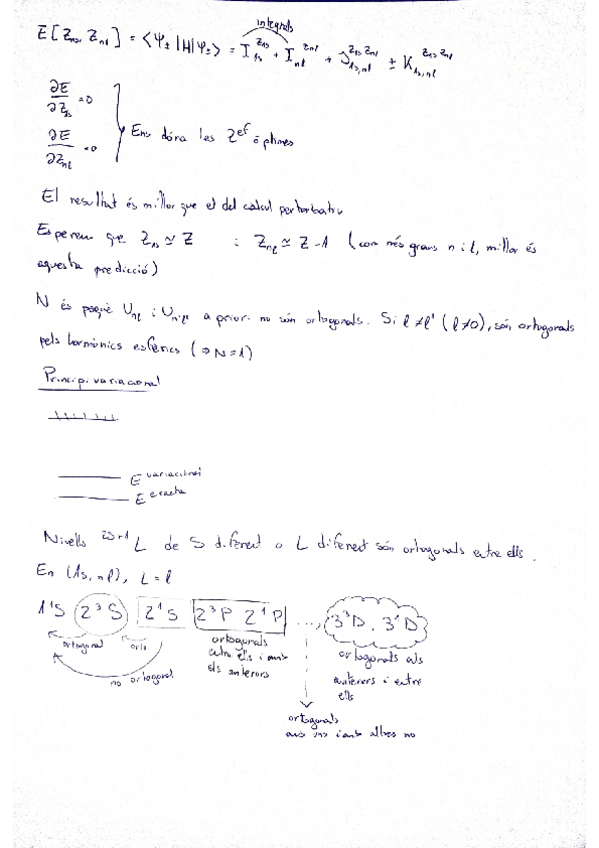 integrals
E[Z₁ₛ, Zₙₗ] = ⟨Ψ± |H|Ψ±⟩ = I₁ₛ^Z₁ₛ + Iₙₗ^Zₙₗ + J₁ₛ,ₙₗ^Z₁ₛ Zₙₗ ± K₁ₛ,ₙₗ^Z₁ₛ Zₙₗ
∂E/∂Z₁ₛ = 0
∂E/∂Zₙₗ = 0
Ens dóra les Z^ef òptimes
El resultat és millor que el del calcul perturbatiu
Esperem que Z₁ₛ ≃ Z i Zₙₗ ≃ Z-1 (com més grans n i l, millor és
aquesta predicció)
N és perquè Uₙₗ i Uₙ'ₗ' a priori no són ortogonals. Si l ≠ l' (l ≠ 0), són ortogonals
pels harmònics esfèrics (⇒ N = 1)
Principi variacional
E variacional
E exacta
Nivells ²ˢ⁺¹L de S diferent o L diferent són ortogonals entre ells.
En (1s, nl), L = l
1¹S 2³S 2¹S 2³P 2¹P ..., 3³D, 3¹D
ortogonal
orto
no ortogonal
ortogonals
entre ells i amb
els anteriors
ortogonals als
anteriors i entre
ells
ortogonals
amb uns i amb altres no